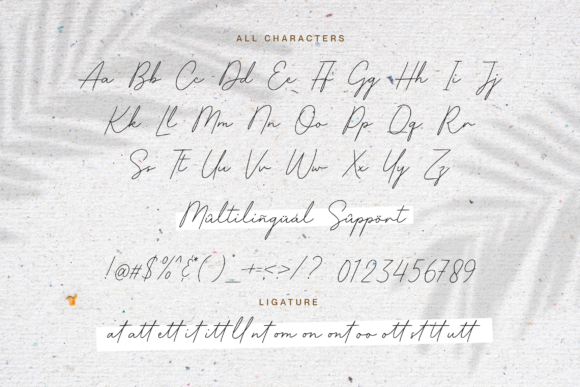 ALL CHARACTERS
Aa Bb Cc Dd Ee Ff Gg Hh Ii Jj
Kk Ll Mm Nn Oo Pp Qq Rr
Ss Tt Uu Vv Ww Xx Yy Zz
Mûltiliñgüàl Sûppört
!@#$%^&*( )_+=<>/? 0123456789
LIGATURE
at att ett it itt ll nt om on ont oo ott st tt utt